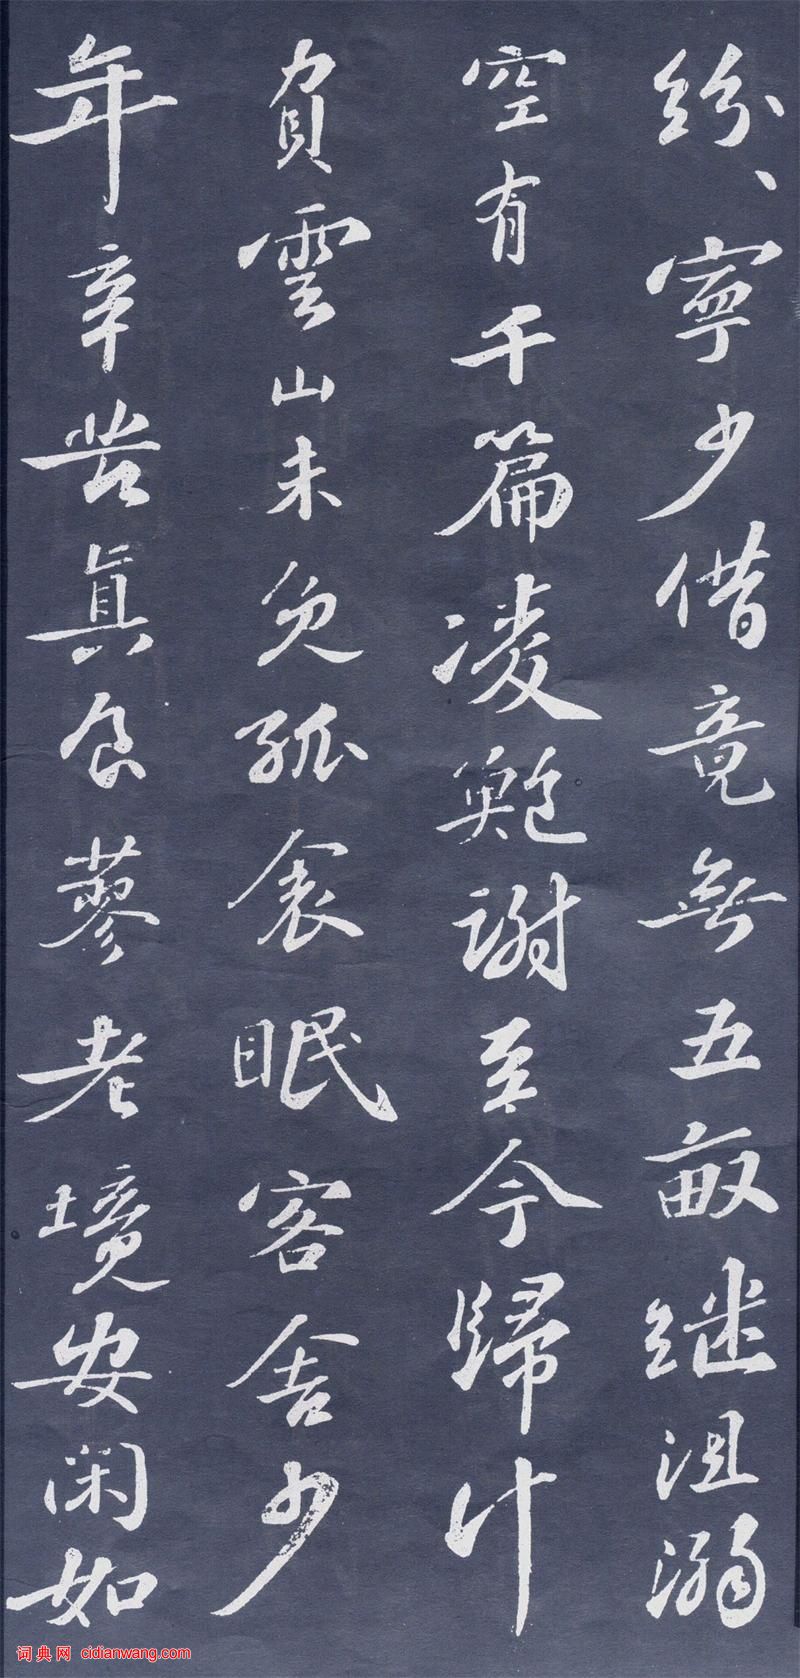 紛、寧少借竟無五畝継沮溺
空有千篇凌鮑謝至今歸计
負雲山未免孤衾眠客舍少
年辛苦真食蓼老境安閑如
词典网 cidianwang.com